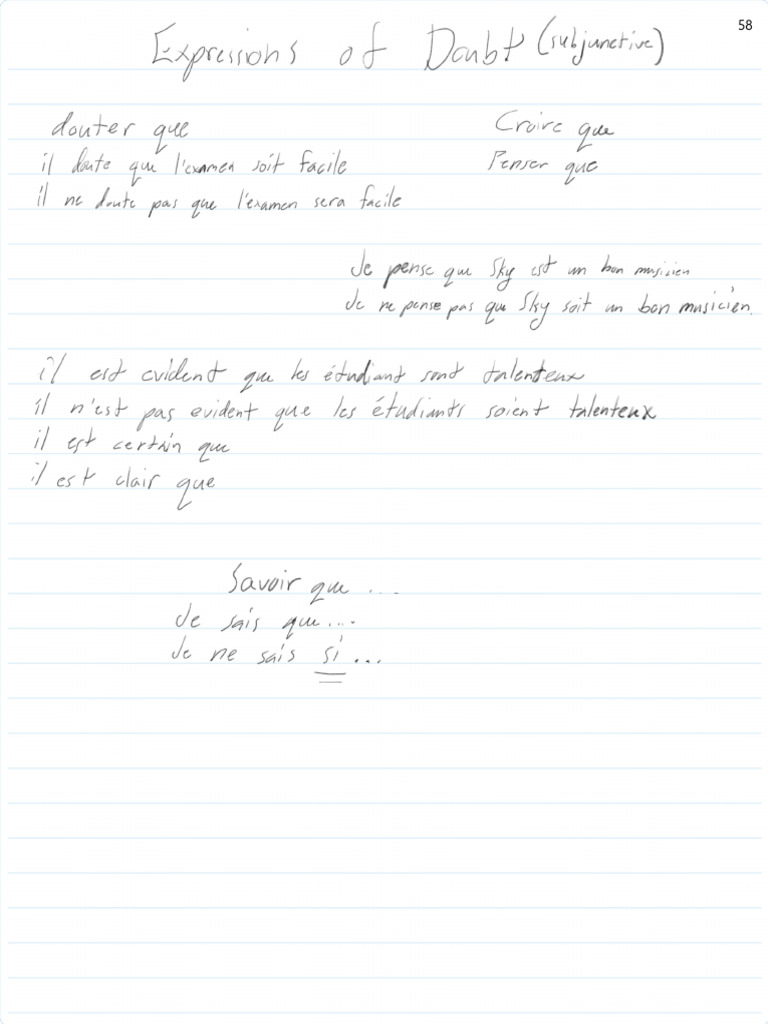 58
Expressions of Doubt (subjunctive)
douter que
il doute que l'examen soit facile
il ne doute pas que l'examen sera facile
Croire que
Penser que
Je pense que Sky est un bon musicien
Je ne pense pas que Sky soit un bon musicien.
il est evident que les étudiant sont talenteux
il n'est pas evident que les étudiants soient talenteux
il est certain que
il est clair que
Savoir que ...
Je sais que....
Je ne sais si ...